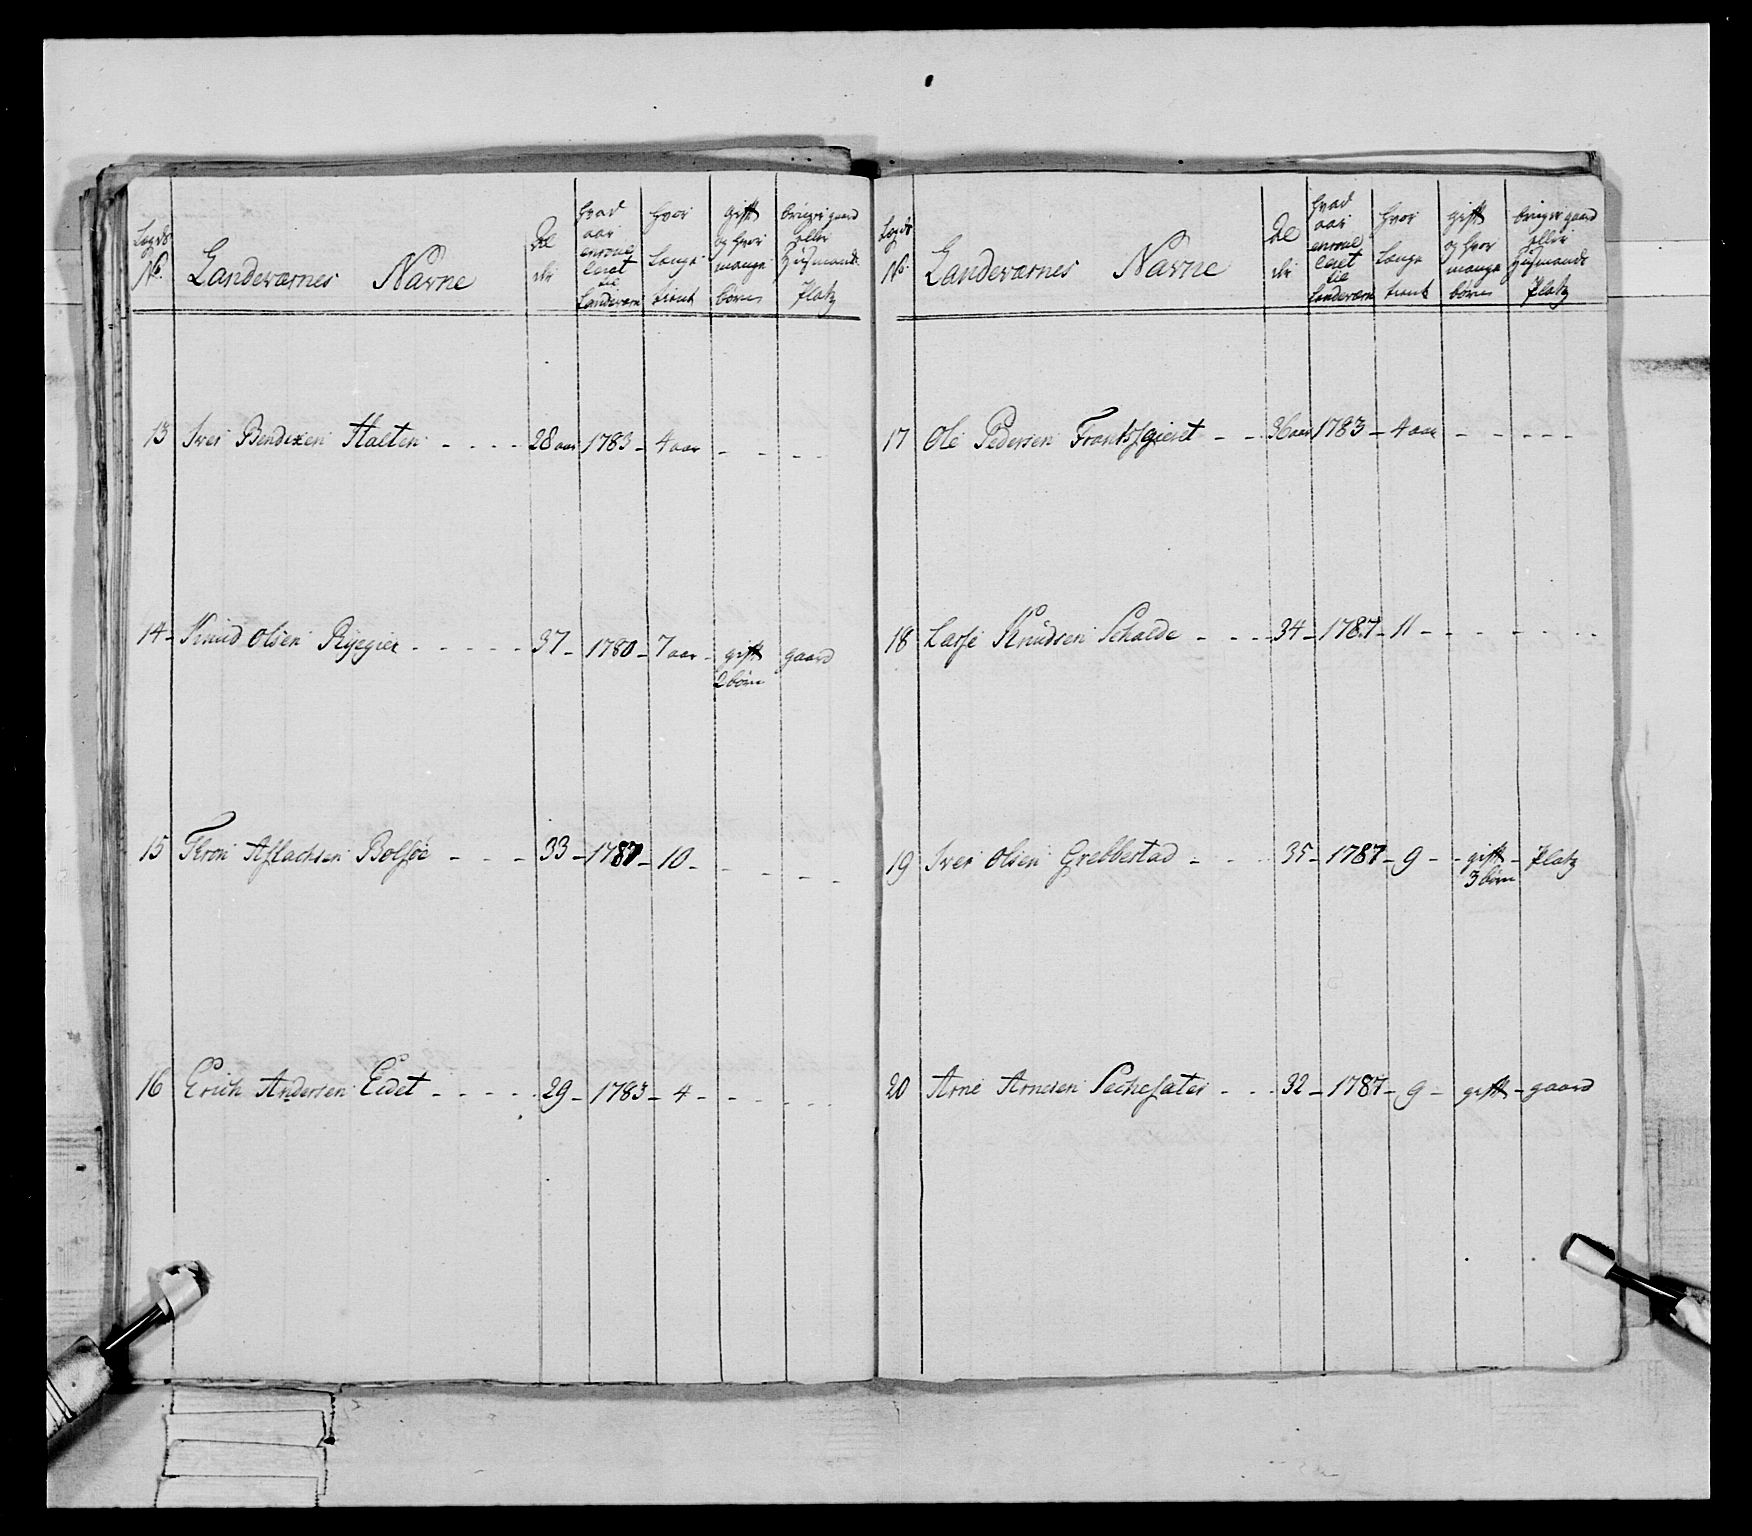 Lægds No. Landeværnes Navne Alder hvad aar enroulleret til Landeværn hvor længe tient gift og hvor mange børn bruger gaard eller Huusmands Platz
13 Iver Bendixen Halten - - - - 28 aar 1783 - 4 aar - - - -
14 - Knud Olsen Ryegier - - - - - 37 - 1780 - 7 aar - gift gaard
2 børn
15 Tron Aslachsen Bolsøe - - - 33 - 1787 - 10 - - - - -
16 Erich Andersen Eidet - - - - - 29 - 1783 - 4 - - - - -
Lægds No. Landeværnes Navne Alder hvad aar enroulleret til Landeværn hvor længe tient gift og hvor mange børn bruger gaard eller Huusmands Platz
17 Ole Pedersen - - 36 aar 1783 - 4 aar - - - - -
18 Lasse Knudsen Schalde - - - 34 - 1787 - 11 - - - - - -
19 Iver Olsen Grebbestad - - - 35 - 1787 - 9 - - gift - Platz
3 børn
20 Arne Arnesen - - - 32 - 1787 - 9 - gift - gaard